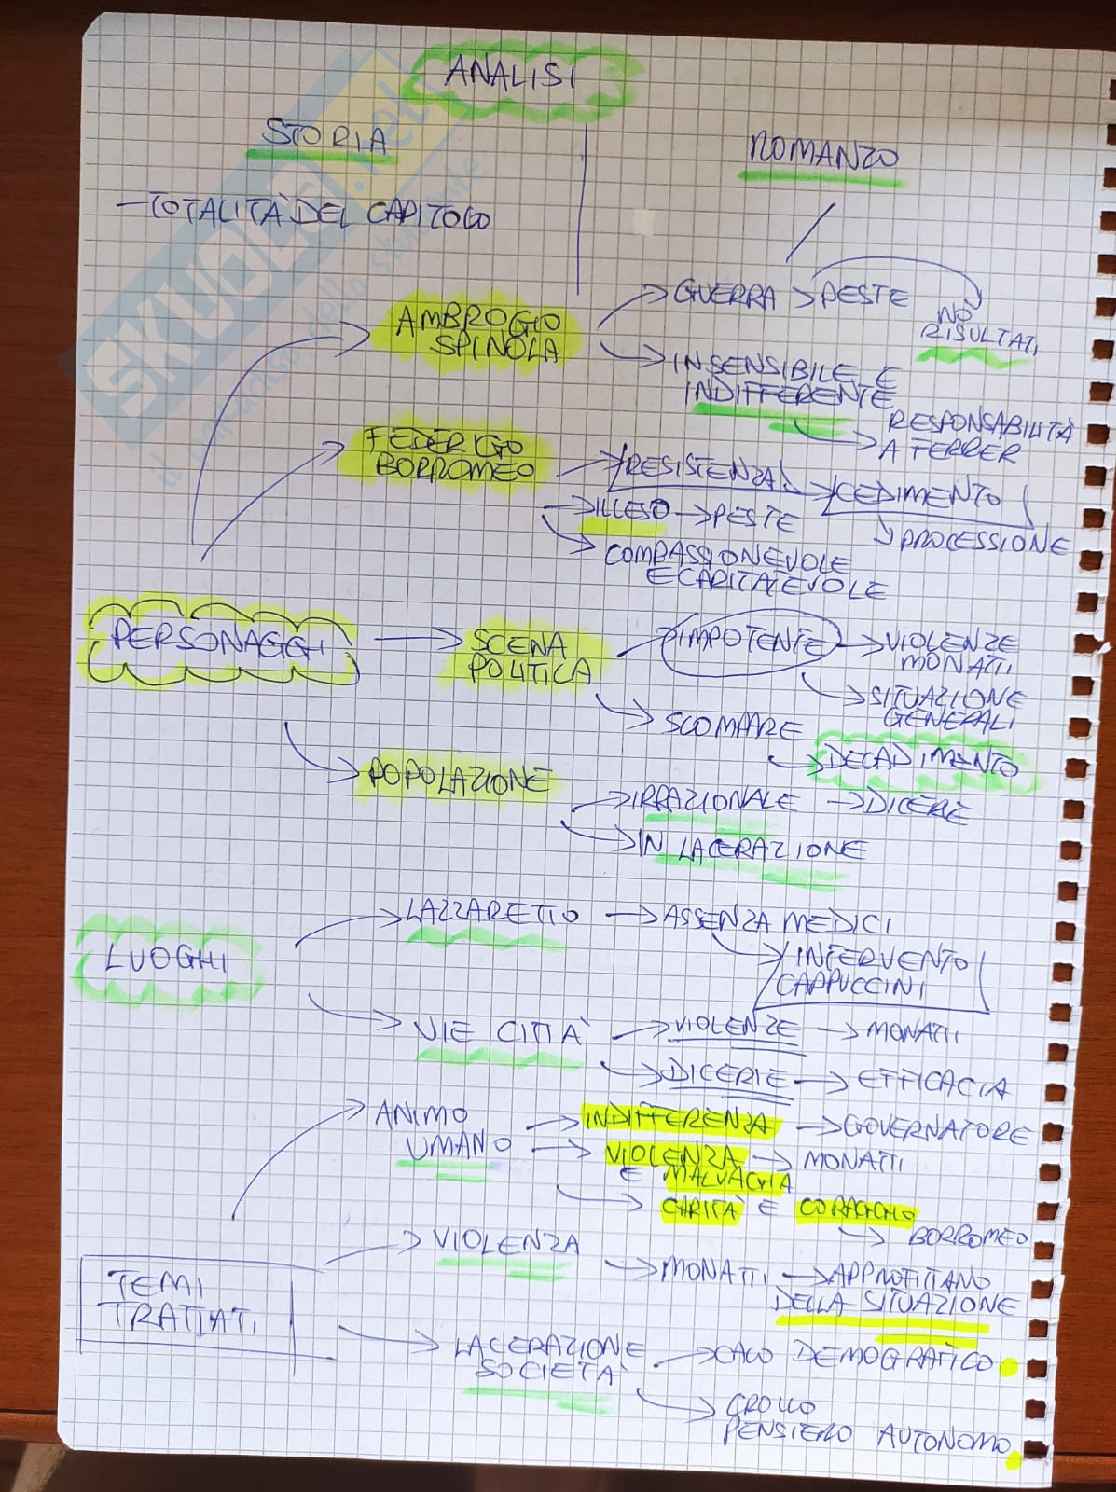 ANALISI
STORIA
ROMANZO
- TOTALITÀ DEL CAPITOLO
AMBROGIO
SPINOLA
→ GUERRA → PESTE
NO
RISULTATI
→ INSENSIBILE E
INDIFFERENTE
→ RESPONSABILITÀ
A FERRER
FEDERIGO
BORROMEO
→ RESISTENZA → CEDIMENTO
→ PROCESSIONE
→ ILLESO → PESTE
→ COMPASSIONEVOLE
E CARITATEVOLE
PERSONAGGI
→ SCENA
POLITICA
→ IMPOTENTE → VIOLENZE
MONATTI
→ SITUAZIONE
GENERALI
→ SCOMPARE
→ DECADIMENTO
→ POPOLAZIONE
→ IRRAZIONALE → DICERIE
→ IN LACERAZIONE
LUOGHI
→ LAZZARETTO → ASSENZA MEDICI
→ INTERVENTO
CAPPUCCINI
→ VIE CITTÀ → VIOLENZE → MONATTI
→ DICERIE → EFFICACIA
→ ANIMO
UMANO
→ INDIFFERENZA → GOVERNATORE
→ VIOLENZA → MONATTI
E MALVAGIA
→ CARITÀ E CORAGGIO
→ BORROMEO
TEMI
TRATTATI
→ VIOLENZA
→ MONATTI → APPROFITTANO
DELLA SITUAZIONE
→ LACERAZIONE
SOCIETÀ
→ CALO DEMOGRAFICO
→ CROLLO
PENSIERO AUTONOMO
SKUOLA.net